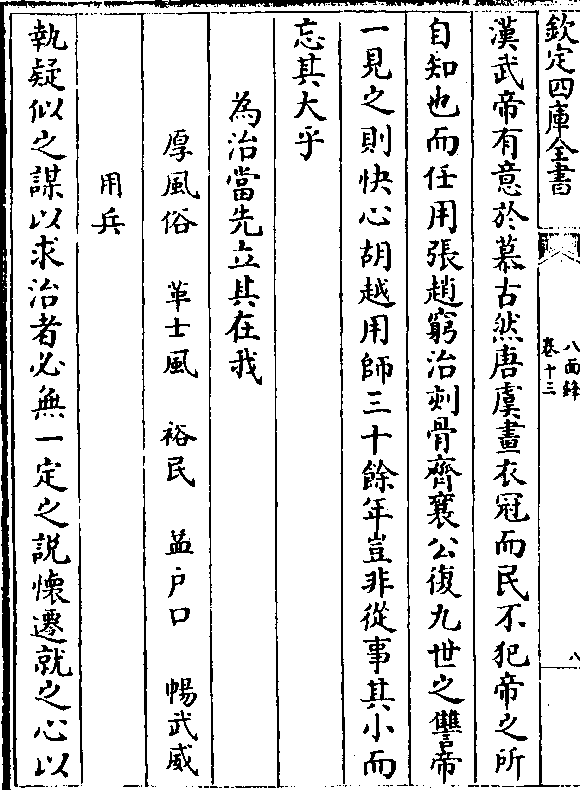 欽定四庫全書
八面鋒
卷十三
八
漢武帝有意於慕古然唐虞畫衣冠而民不犯帝之所
自知也而任用張趙窮治刻骨齊襄公復九世之讐帝
一見之則快心胡越用師三十餘年豈非從事其小而
忘其大乎
為治當先立其在我
厚風俗 革士風 裕民 益户口 暢武威
用兵
執疑似之謀以求治者必無一定之説懷遷就之心以